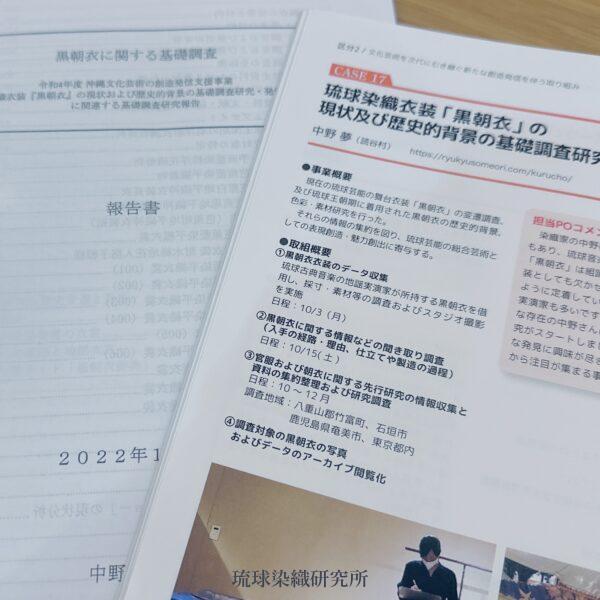 黒朝衣に関する基礎調査
令和4年度 沖縄文化芸術の創造発信支援事業
織衣装『黒朝衣』の現状および歴史的背景の基礎調査研究・発
に関連する基礎調査研究報告
報告書
2022年1
中野
区分2 / 文化芸術を次代に引き継ぐ新たな創造発信を伴う取り組み
CASE 17
琉球染織衣装「黒朝衣」の
現状及び歴史的背景の基礎調査研究
中野 夢（読谷村） https://ryukyusomeori.com/kurucho/
●事業概要
現在の琉球芸能の舞台衣装「黒朝衣」の変遷調査、
及び琉球王朝期に着用された黒朝衣の歴史的背景、
色彩・素材研究を行った。
それらの情報の集約を図り、琉球芸能の総合芸術と
しての表現創造・魅力創出に寄与する。
●取組概要
①黒朝衣衣装のデータ収集
琉球古典音楽の地謡実演家が所持する黒朝衣を借
用し、採寸・素材等の調査およびスタジオ撮影
を実施
日程：10/3（月）
②黒朝衣に関する情報などの聞き取り調査
（入手の経路・理由、仕立てや製造の過程）
日程：10/15(土)
③官服および朝衣に関する先行研究の情報収集と
資料の集約整理および研究調査
日程：10〜12月
調査地域：八重山郡竹富町、石垣市
鹿児島県奄美市、東京都内
④調査対象の黒朝衣の写真
およびデータのアーカイブ閲覧化
担当POコメン
染織家の中野
もあり、琉球音
「黒朝衣」は組踊
装としても欠かせ
ように定着してい
実演家も多いです
な存在の中野さんの
究がスタートしまし
な発見に興味が尽き
から注目が集まる事
琉球染織研究所